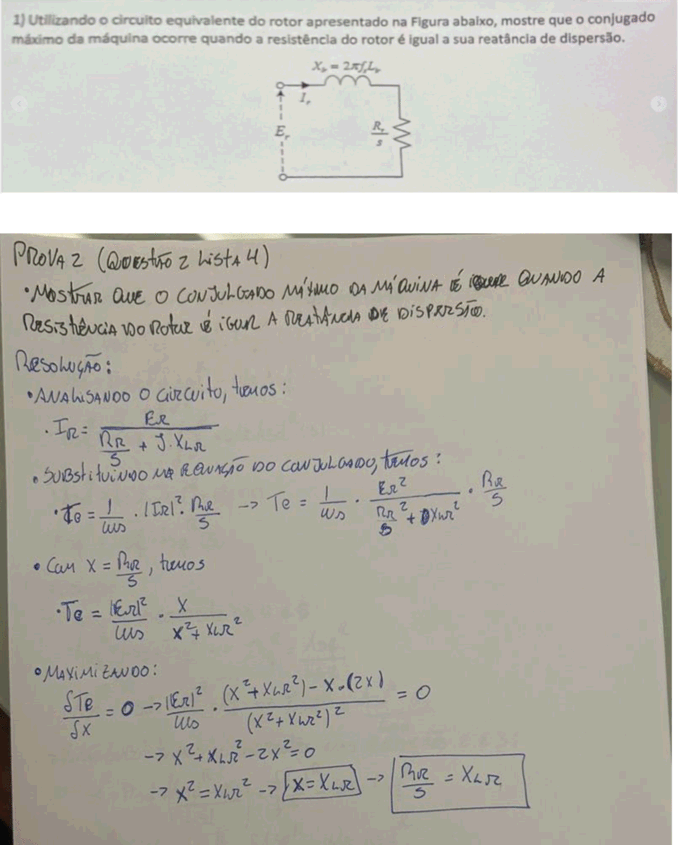 1) Utilizando o circuito equivalente do rotor apresentado na Figura abaixo, mostre que o conjugado
máximo da máquina ocorre quando a resistência do rotor é igual a sua reatância de dispersão.
Xᵣ = 2πfᵣLᵣ
Iᵣ
Eᵣ
Rᵣ/s
PROVA 2 (QUESTÃO 2 LISTA 4)
• MOSTRAR QUE O CONJULGADO MÁXIMO DA MÁQUINA É QUANDO A
RESISTÊNCIA DO ROTOR É IGUAL A REATÂNCIA DE DISPERSÃO.
RESOLUÇÃO:
• ANALISANDO O CIRCUITO, temos:
• IR = ER / (RR/S + J·XLR)
• SUBSTITUINDO NA EQUAÇÃO DO CONJULGADO, temos:
• Te = 1/ωs · |IR|² · RR/S → Te = 1/ωs · ER² / (RR²/S + XLR²) · RR/S
• Com X = RR/S, temos
• Te = |ER|²/ωs · X/(X² + XLR²)
• MAXIMIZANDO:
δTe/δX = 0 → |ER|²/ωs · ((X² + XLR²) - X·(2X))/(X² + XLR²)² = 0
→ X² + XLR² - 2X² = 0
→ X² = XLR² → X = XLR → RR/S = XLR